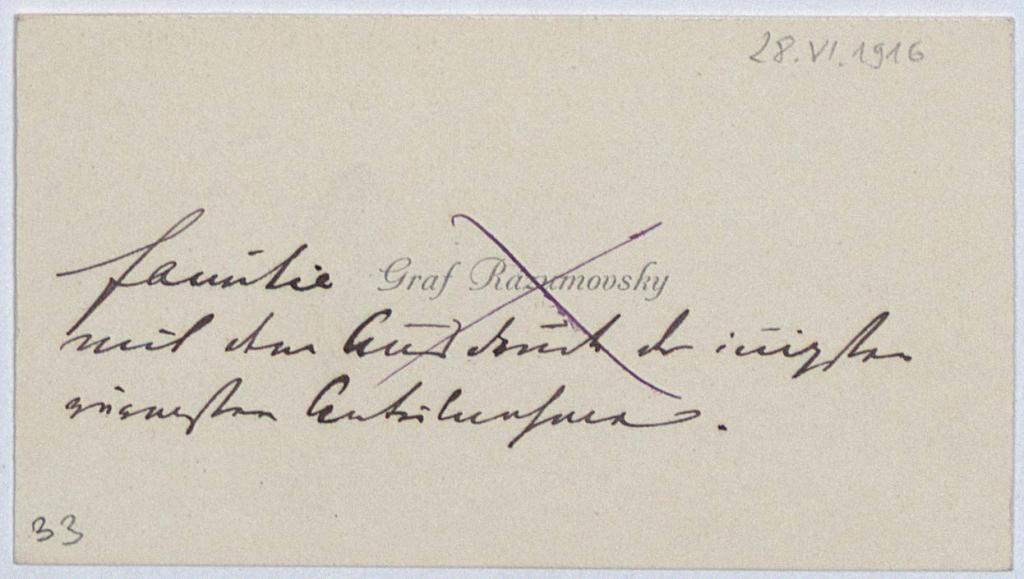 28.VI.1916
Familie Graf Razumovsky
mit dem Ausdruck der innigsten
wärmsten Anteilnahme.
33